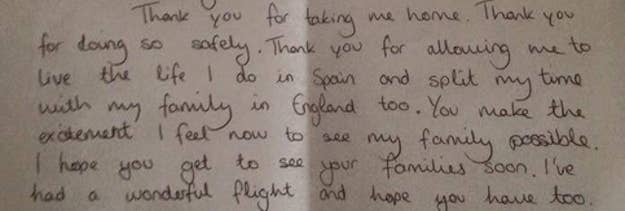 Thank you for taking me home. Thank you
for doing so safely. Thank you for allowing me to
live the life I do in Spain and split my time
with my family in England too. You make the
excitement I feel now to see my family possible.
I hope you get to see your families soon. I've
had a wonderful flight and hope you have too.